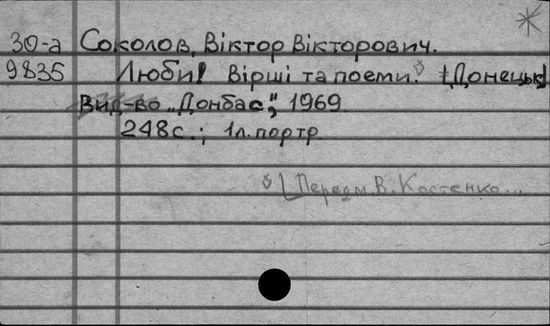 30-а Соколов, Віктор Вікторович.
9835 Люби! Вірші та поеми. [Донецьк]
Вид-во „Донбас", 1969.
248с.; 1л. портр
[Передм. В. Костенко...